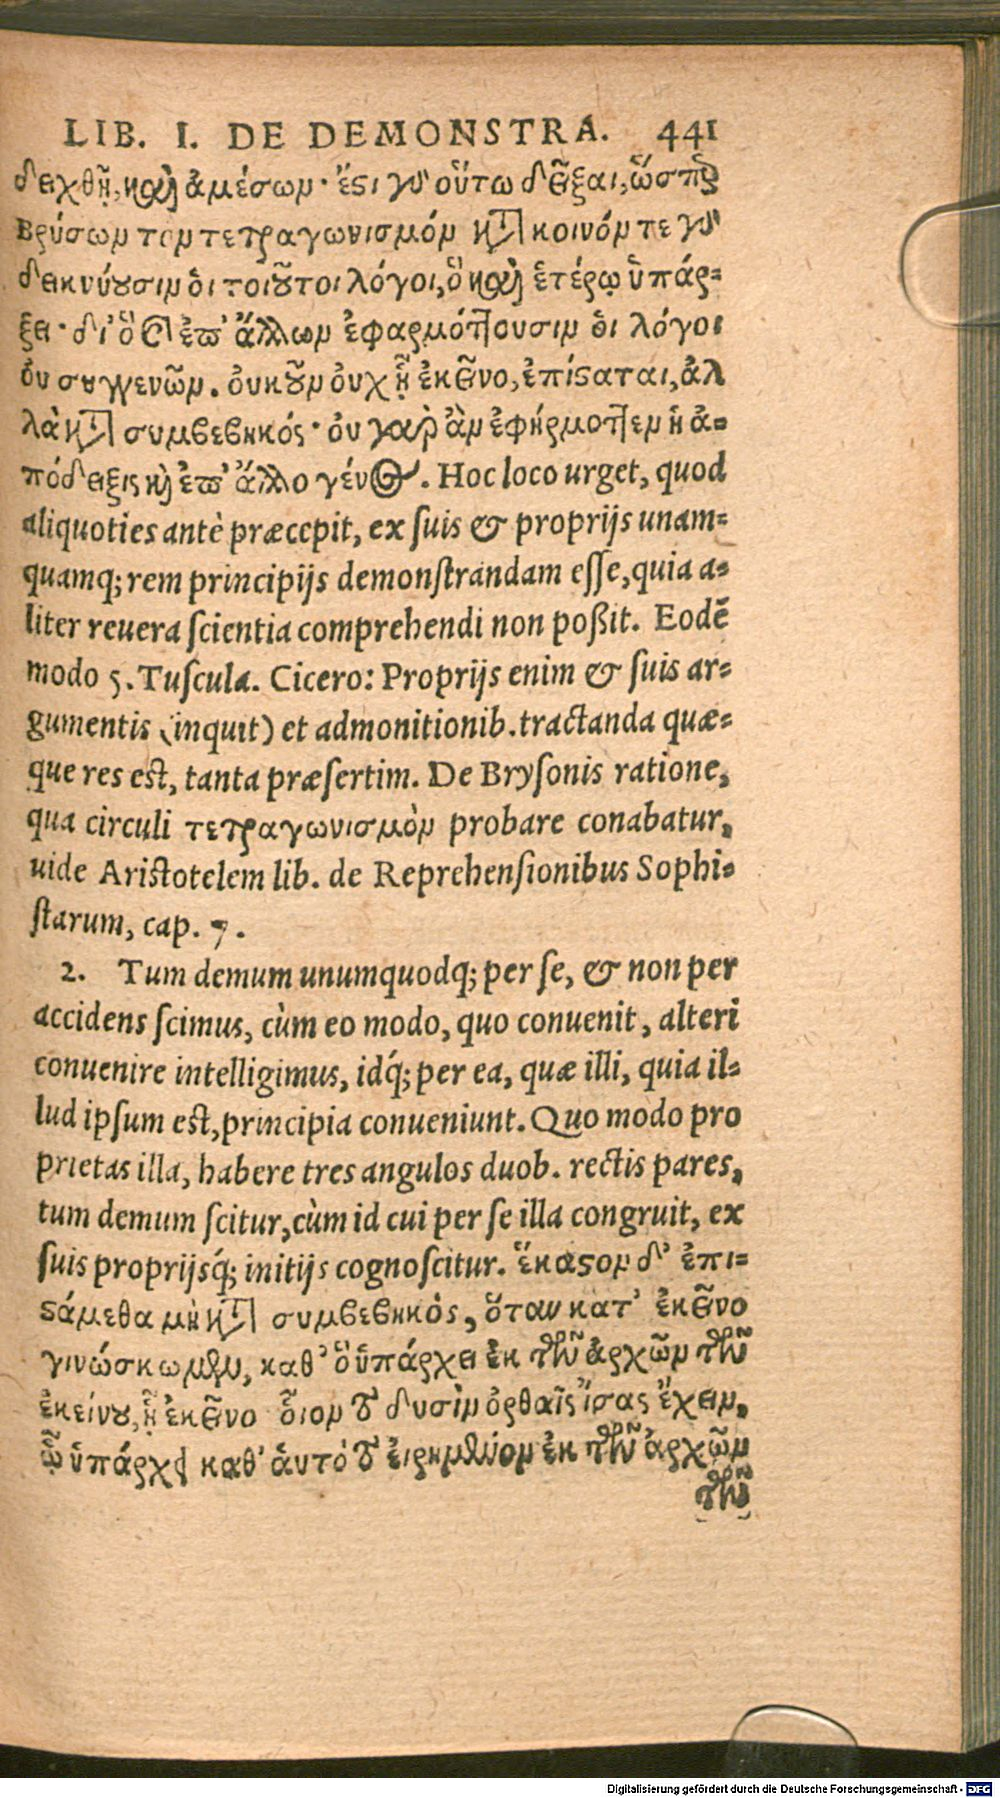 LIB. I. DE DEMONSTRA. 441
δειχθῇ, καὶ ἀμέσων· ἔστι γὰρ οὕτω δεῖξαι, ὥσπερ
Βρύσων τὸν τετραγωνισμόν κατὰ κοινόν τε γὰρ
δεικνύουσιν ὁι τοιοῦτοι λόγοι, ὃ καὶ ἑτέρῳ ὑπάρ-
ξει· δι' ὃ καὶ ἐπ' ἄλλων ἐφαρμόττουσιν ὁι λόγοι
ὀυ συγγενῶν. ὀυκοῦν ὀυχ ᾗ ἐκεῖνο, ἐπίσταται, ἀλ
λὰ κατὰ συμβεβηκός· ὀυ γαρ ἂν ἐφήρμοττεν ἡ ἀ-
πόδειξις καὶ ἐπ' ἄλλο γένος. Hoc loco urget, quod
aliquoties antè præcepit, ex suis & proprijs unam-
quamq; rem principijs demonstrandam esse, quia a-
liter reuera scientia comprehendi non poßit. Eodē
modo 5. Tuscula. Cicero: Proprijs enim & suis ar-
gumentis (inquit) et admonitionib. tractanda quæ-
que res est, tanta præsertim. De Brysonis ratione,
qua circuli τετραγωνισμὸν probare conabatur,
uide Aristotelem lib. de Reprehensionibus Sophi-
starum, cap. 7.
2. Tum demum unumquodq; per se, & non per
accidens scimus, cùm eo modo, quo conuenit, alteri
conuenire intelligimus, idq́; per ea, quæ illi, quia il-
lud ipsum est, principia conueniunt. Quo modo pro
prietas illa, habere tres angulos duob. rectis pares,
tum demum scitur, cùm id cui per se illa congruit, ex
suis proprijsq́; initijs cognoscitur. ἕκαστον δ' ἐπι-
στάμεθα μὴ κατὰ συμβεβηκὸς, ὅταν κατ' ἐκεῖνο
γινώσκωμεν, καθ' ὃ ὑπάρχει ἐκ τῶν ἀρχῶν τῶν
ἐκείνου, ᾗ ἐκεῖνο οἷον τὸ δυσὶν ὀρθαῖς ἴσας ἔχειν,
ᾧ ὑπάρχει καθ' ἁυτὸ τὸ ἐιρημένον ἐκ τῶν ἀρχῶν
τῶν
Digitalisierung gefördert durch die Deutsche Forschungsgemeinschaft - DFG